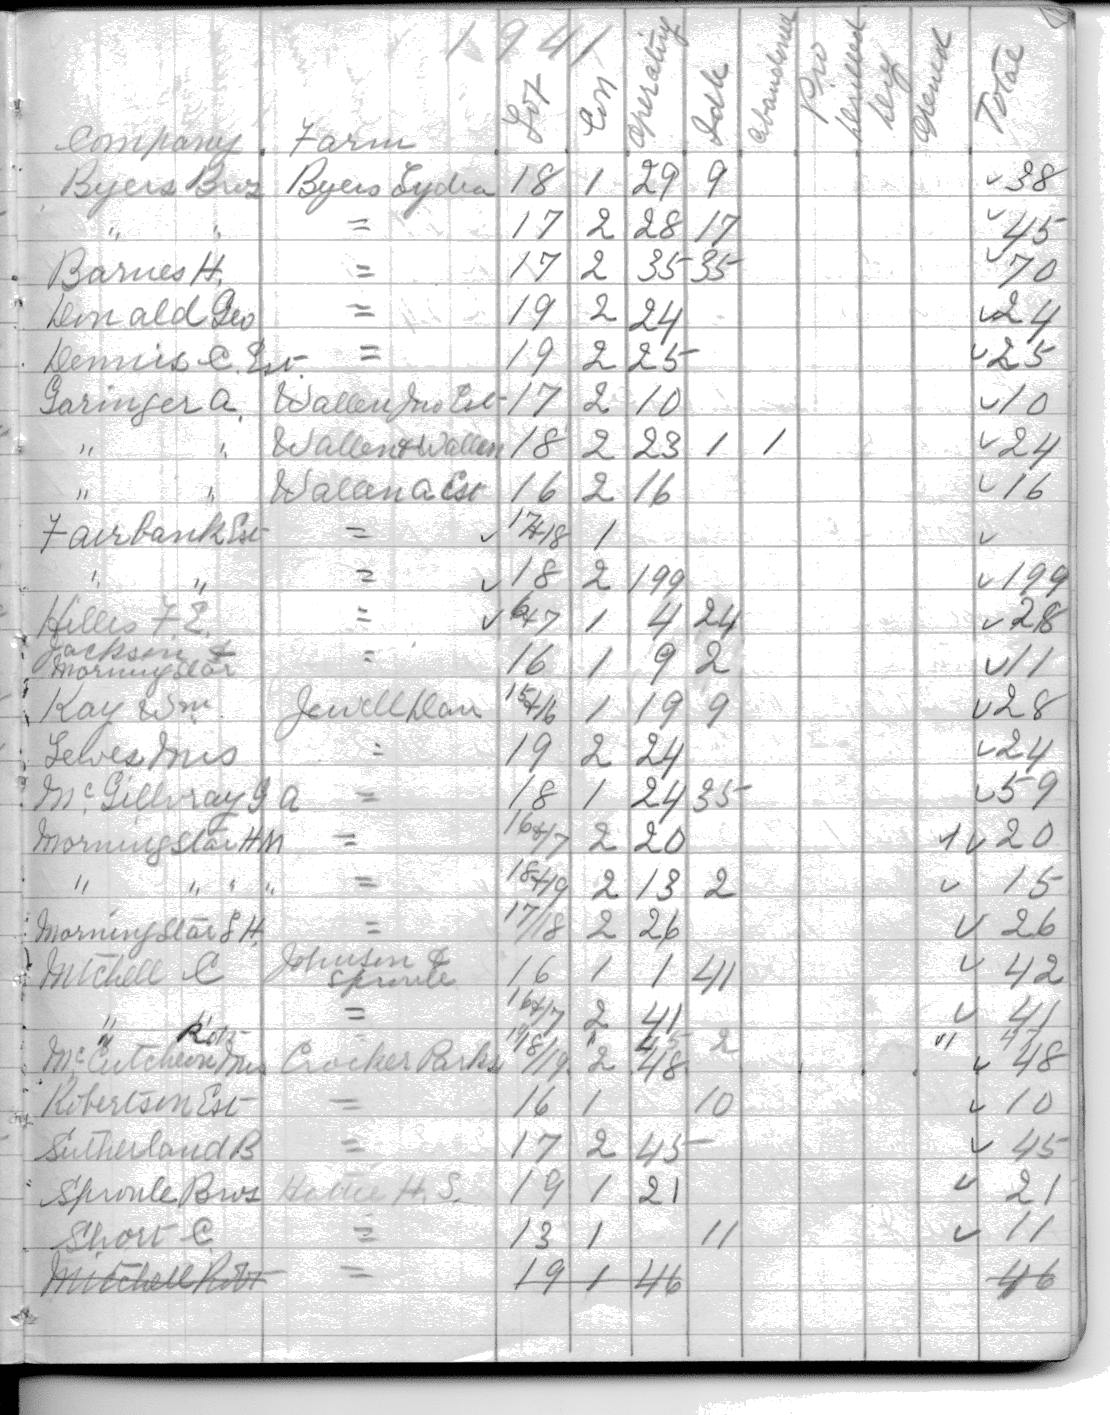 1941
Company Farm Lot Con Operating Idle Abandoned Pro Drilled Dry Opened Total
Byers Bros Byers Lydia 18 1 29 9 ✓38
" " = 17 2 28 17 ✓45
Barnes H. = 17 2 35 35 ✓70
Donald Geo = 19 2 24 ✓24
Dennis C. Est. = 19 2 25 ✓25
Garinger A. Wallen Jno Est 17 2 10 ✓10
" " Wallen & Wallen 18 2 23 1 1 ✓24
" " Wallen A Est 16 2 16 ✓16
Fairbank Est = ✓ 17+18 1 ✓
" " = ✓ 18 2 199 ✓199
Hillis F. E. = ✓ 6+7 1 4 24 ✓28
Jackson &
Morningstar = 16 1 9 2 ✓11
Kay Wm. Jewell Dan 15+16 1 19 9 ✓28
Lewes Mrs = 19 2 24 ✓24
McGillvray G A = 18 1 24 35 ✓59
Morningstar H M = 16+17 2 20 1 ✓20
" " " " = 18+19 2 13 2 ✓ 15
Morningstar S H. = 17/18 2 26 ✓ 26
Mitchell C Johnson &
Sproule 16 1 1 41 ✓ 42
" " = 16+17 2 41 ✓ 41
" Robt " 45 2 47
McCutcheon Mrs Crocker Parks 18/19 2 48 ✓ 48
Robertson Est = 16 1 10 ✓ 10
Sutherland B = 17 2 45 ✓ 45
Sproule Bros Hattie H. S. 19 1 21 ✓ 21
Short C = 13 1 11 ✓ 11
Mitchell Robt = 19 1 46 46